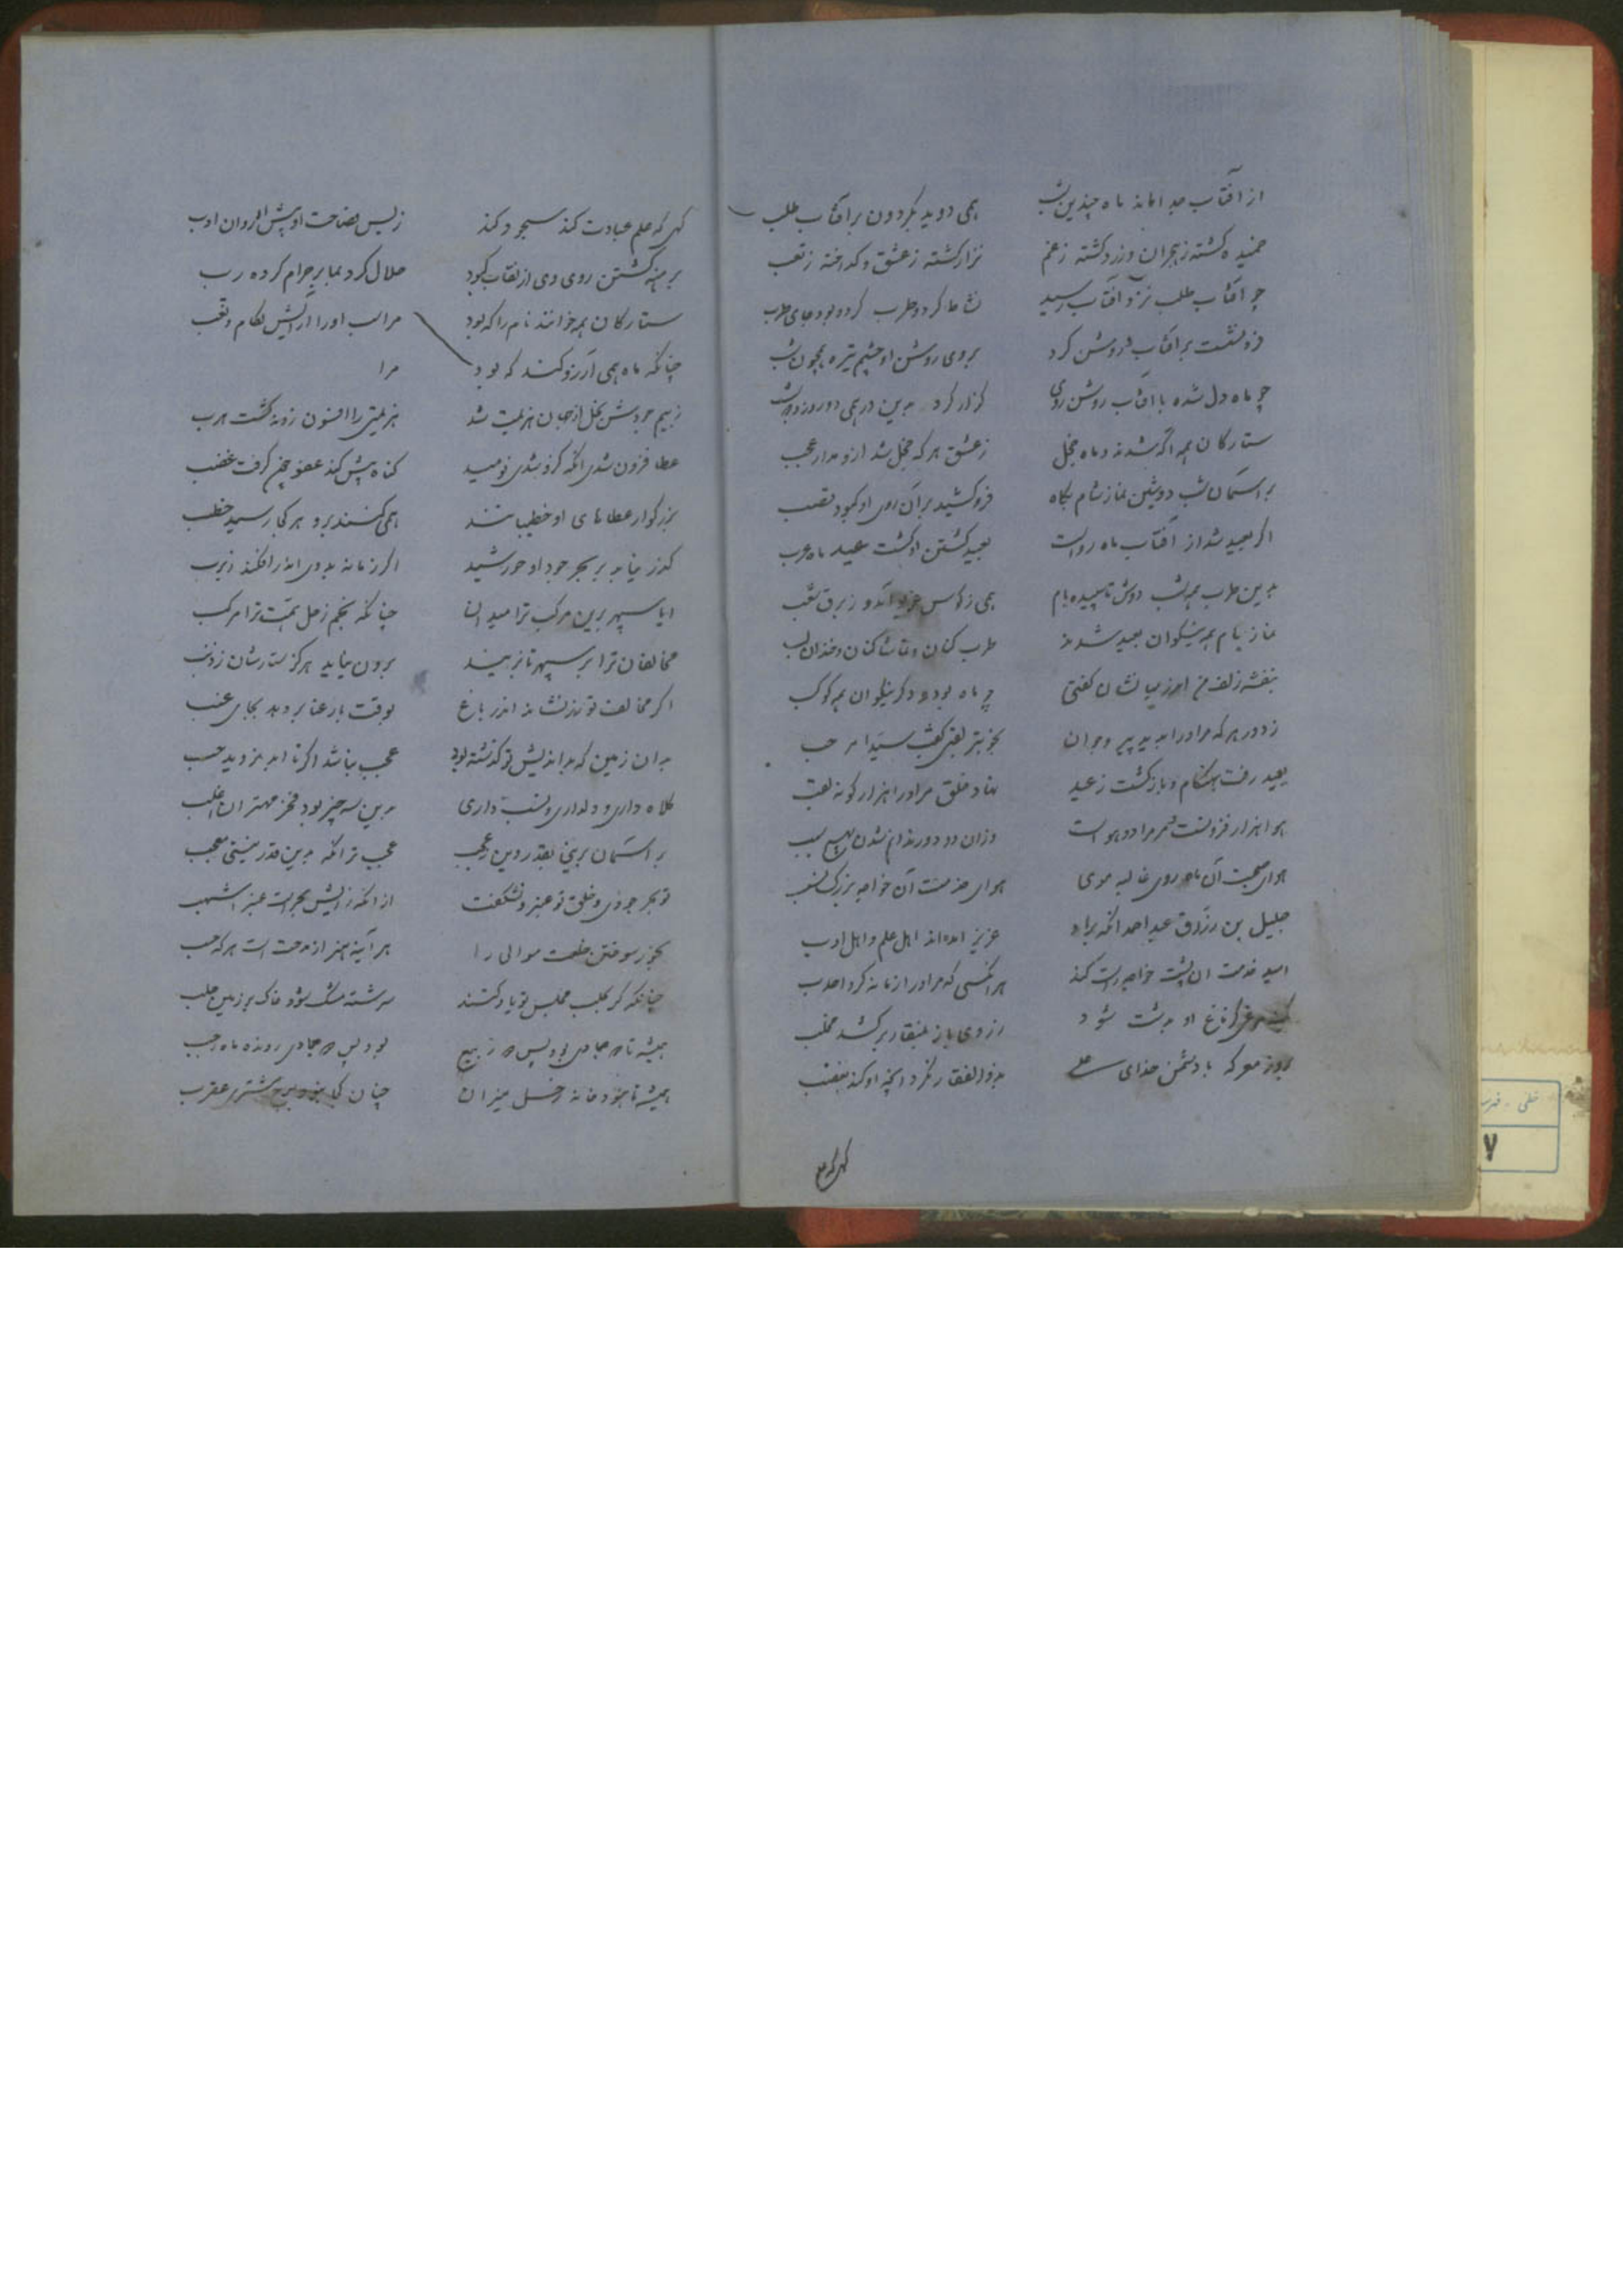 از آفتاب جدا ماند ماه چندین شب همی دوید بگردون بر آفتاب طلب
خمیده گشته ز هجران و زرد گشته ز غم نزار گشته ز عشق و گداخته ز تعب
چو آفتاب طلب نزد آفتاب رسید نشاط کرد و طرب کرد و بود جای طرب
فرو نشست بر آفتاب و روشن کرد بروی روشن او چشم تیره همچون شب
چو ماه دل شده با آفتاب روشن روی گذار کرد بدین در همی دو روز و دو شب
ستارکان همه آگه شدند و ماه خجل ز عشق هر که خجل شد ازو مدار عجب
بر آسمان شب دوشین نماز شام پگاه فرو کشید بر آن روی او کبود قصب
اگر بعید شد از آفتاب ماه رواست بعید گشتن او گشت عید ماه عرب
بدین طرب همه شب دوش تا سپیده بام همی ز کوس غریو آمد و ز بوق شغب
نماز بام همه نیکوان بعید شدند طرب کنان و تماشا کنان و خندان لب
بنفشه زلف من اندر میانشان گفتی چو ماه بود و دگر نیکوان همه کوکب
ز دور هر که مر او را بدید پیر و جوان بخوبتر لقبی گفت سیدا مرحب
بعید رفت بهنگام و باز گشت ز عید نهاد خلق مر او را هزار گونه لقب
هوا هزار فزونست و مر مرا دو هواست وزان دو دور ندانم شدن بهیچ سبب
هوای صحبت آن ماه روی غالیه موی هوای خدمت آن خواجه بزرگ نسب
جلیل بن رزاق عبد احمد آنکه بداد عزیز آمده‌اند اهل علم و اهل ادب
امید خدمت آن پشت خواجه راست کند هر آنکسی که مر او را زمانه کرد احدب
کمینه مرغی کز باغ او بدشت شود ز روی باز بمنقار بر کشد مخلب
بروز معرکه با دشمن خدای علی بذوالفقار نکرد آنچه او کند بغضب
کهی که علم
کهی که علم عبادت کند سجود کند ز بس فصاحت او پیش او روان ادب
برهنه گشتن روی وی از نقاب کبود حلال کرد بما بر حرام کرده رب
ستارکان همه خوانند نام را که بود مر اسب او را آرایش لگام و قتب
چنانکه ماه همی آرزو کند که بود مرا
ز بیم جودش بخل از جهان هزیمت شد هزیمتی را افسون زوبه گشت هرب
عطا فزون شدی آنکه کزو شدی نومید گناه پیش کند عفو چون گرفت غضب
بزرگوار عطاهای او خطیبانند همی کنند برو هر کجا رسید خطب
گذر نیابد بر بحر جود او خورشید اگر زمانه بدوی اندر افکند زبزب
ایا سپهر برین مرکب ترا میدان چنانکه نجم زحل همت ترا مرکب
مخالفان ترا بر سپهر تا بزیند برون نیاید هرگز ستارشان ز ذنب
اگر مخالف تو رز نشاند اندر باغ بوقت بار عنا بر دهد بجای عنب
بدان زمین که بداندیش تو گذشته بود عجب نباشد اگر تا ابد نروید حب
کلاه داری و دلداری و نسب داری بدین سه چیز بود فخر مهتران اغلب
بر آسمان برینی بقدر وین عجب عجب تر آنکه بدین قدر نیستی معجب
تو بحر جودی و خلق تو عنبر و نشگفت از آنکه زایش بحرست عنبر اشهب
بجز بسوختن خلعت موالی را هر آینه هنر از مدحت است هر که حسب
چنانکه گر بحلب مجلس تو یاد کنند سرشته مشک شود خاک بر زمین حلب
همیشه تا دو جمادی بود پس دو ربیع بود پس دو جمادی رونده ماه رجب
همیشه تا نبود خانه زحل میزان چنان کجا نبود برج مشتری عقرب
خطی - فهر
۷